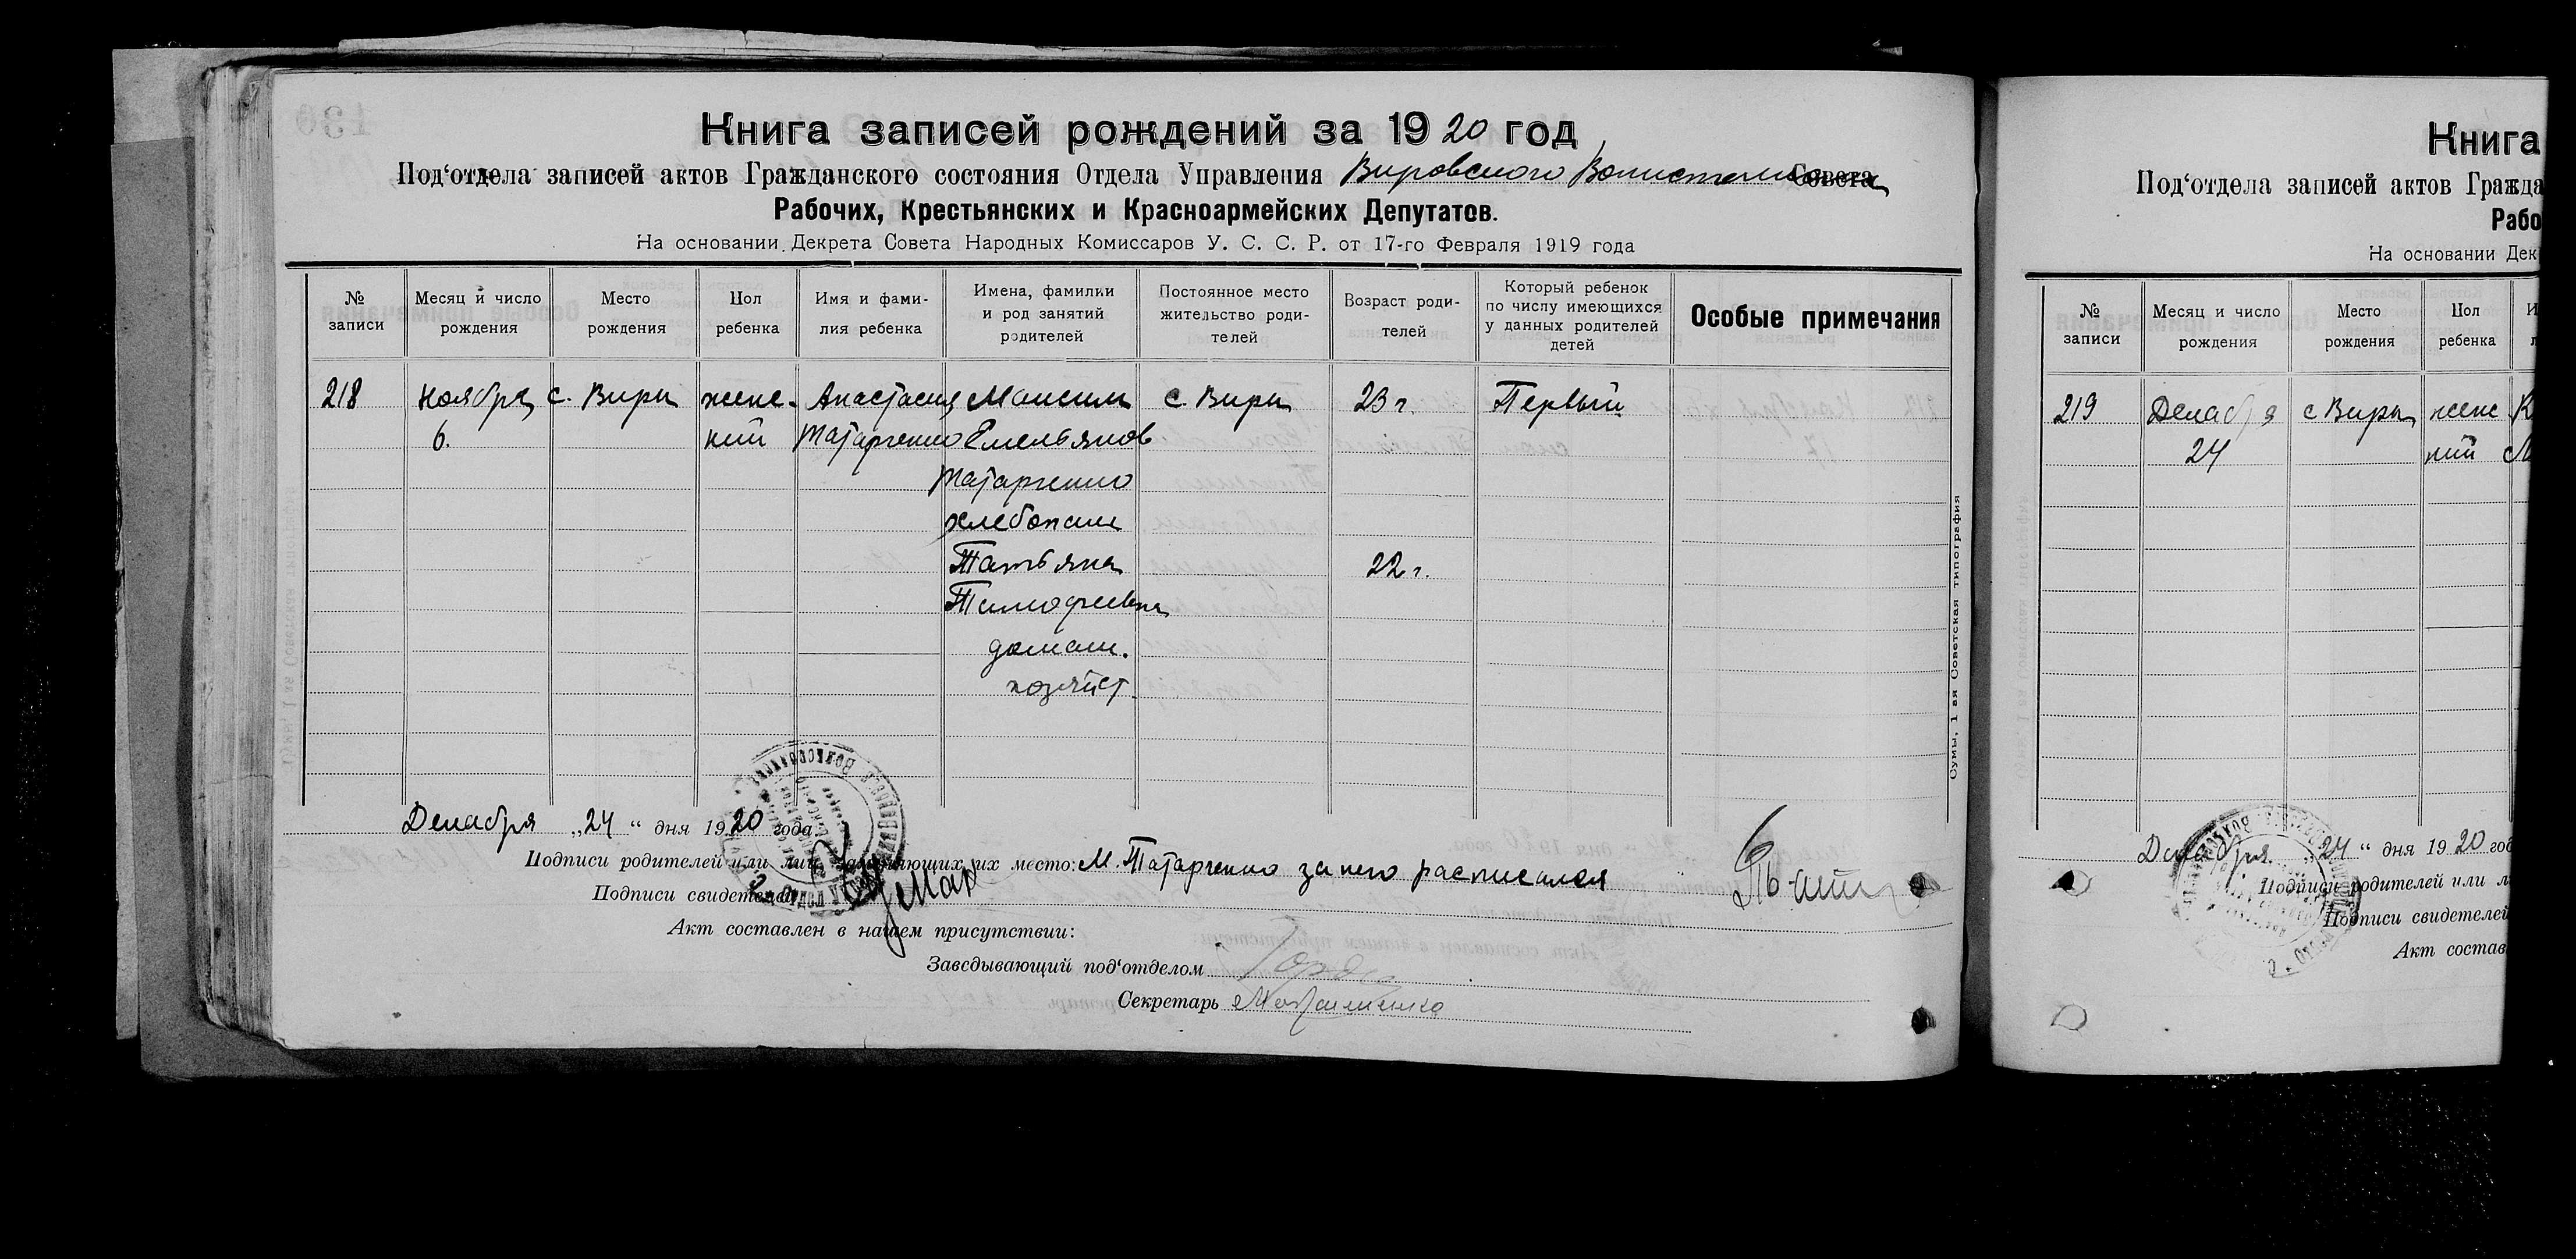 Книга записей рождений за 1920 год
Под‘отдела записей актов Гражданского состояния Отдела Управления Вировского Совета
Рабочих, Крестьянских и Красноармейских Депутатов.
На основании Декрета Совета Народных Комиссаров У. С. С. Р. от 17-го Февраля 1919 года
№ записи
Месяц и число рождения
Место рождения
Пол ребенка
Имя и фами-
лия ребенка
Имена, фамилии
и род занятий
родителей
Постоянное место
жительство роди-
телей
Возраст роди-
телей
Который ребенок
по числу имеющихся
у данных родителей
детей
Особые примечания
218 Ноября с. Виры женс- Анастасия Максим с. Виры 23 г. Первый
6. кий Татарченко Емельянов
Татарченко
хлебопаш
Татьяна 22 г.
Тимофеевна
домаш.
хозяйст.
Декабря „24“ дня 1920 года
Подписи родителей или лиц их место: М. Татарченко за него расписался
Подписи свидетелей
Акт составлен в нашем присутствии:
Заведывающий под‘отделом
Секретарь
Сумы, 1 ая Советская типография
Книга
Под‘отдела записей актов Гражда
Рабо
На основании Дек
№ записи
Месяц и число рождения
Место рождения
Пол ребенка
219 Декабря с Виры женс
24 кий
Декабря „24“ дня 1920 год
Подписи родителей или л
Подписи свидетелей
Акт состав